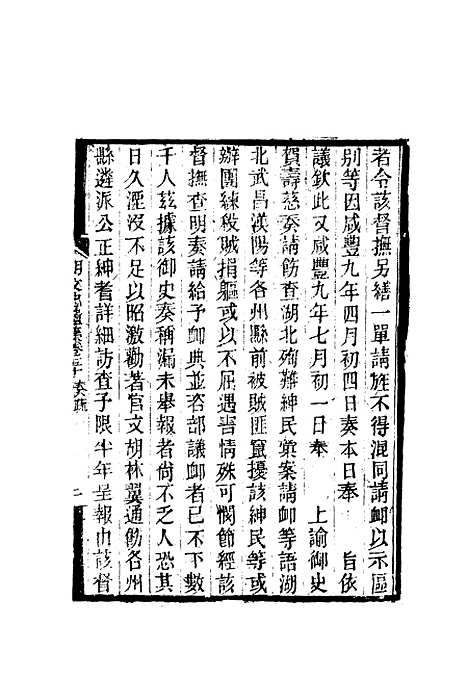 者令該督撫另繕一單請旌不得混同請卹以示區
別等因咸豐九年四月初四日奏本日奉　旨依
議欽此又咸豐九年七月初一日奉　上諭御史
賀壽慈奏請飭查湖北殉難紳民彙案請卹等語湖
北武昌漢陽等各州縣前被賊匪竄擾該紳民等或
辦團練敘賊捐軀或以不屈遇害情殊可憫節經該
督撫查明奏請給予卹典並咨部議卹者已不下數
千人茲據該御史奏稱漏未舉報者尚不乏人恐其
日久湮沒不足以昭激勸著官文胡林翼通飭各州
縣遴派公正紳耆詳細訪查予限半年呈報由該督
胡文忠 奏疏